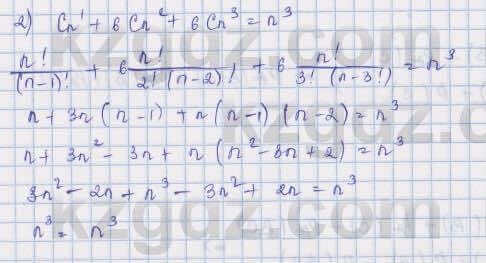 2) Cn¹ + 6Cn² + 6Cn³ = n³
n!/(n-1)! + 6 n!/2!(n-2)! + 6 n!/3!(n-3!) = n³
n + 3n(n-1) + n(n-1)(n-2) = n³
n + 3n² - 3n + n(n² - 3n + 2) = n³
3n² - 2n + n³ - 3n² + 2n = n³
n³ = n³
kzgdz.com